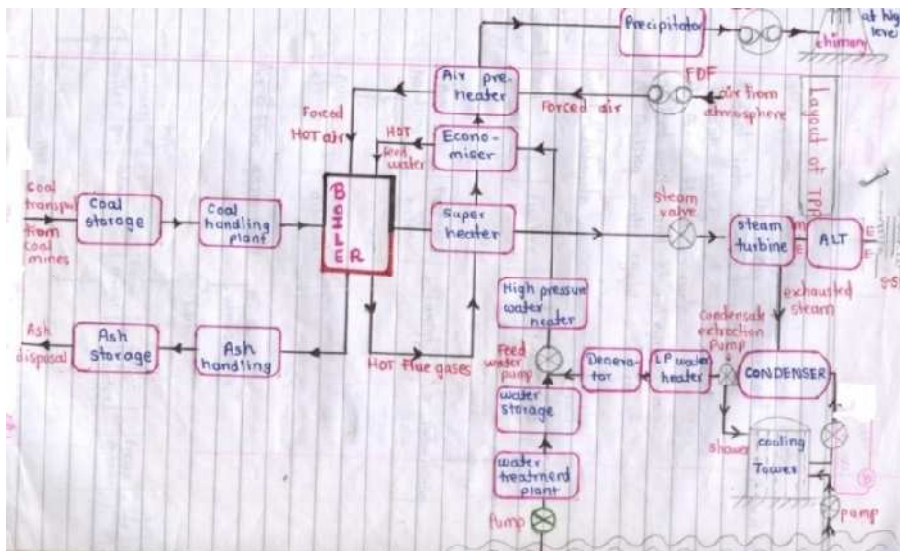 Precipitator
at high
level
chimney
Air pre-
heater
FDF
Forced air
air from
atmosphere
Layout of TPP
Forced
HOT air
HOT
feed
water
Econo-
miser
Coal
from
coal
mines
Coal
storage
Coal
handling
plant
BOILER
Super
heater
steam
valve
steam
turbine
ALT
E
E
exhausted
steam
High pressure
water
heater
Condensate
extraction
Pump
Ash
disposal
Ash
storage
Ash
handling
HOT flue gases
Feed
water
pump
LP water
heater
CONDENSER
water
storage
shower
cooling
Tower
water
treatment
plant
Pump
pump